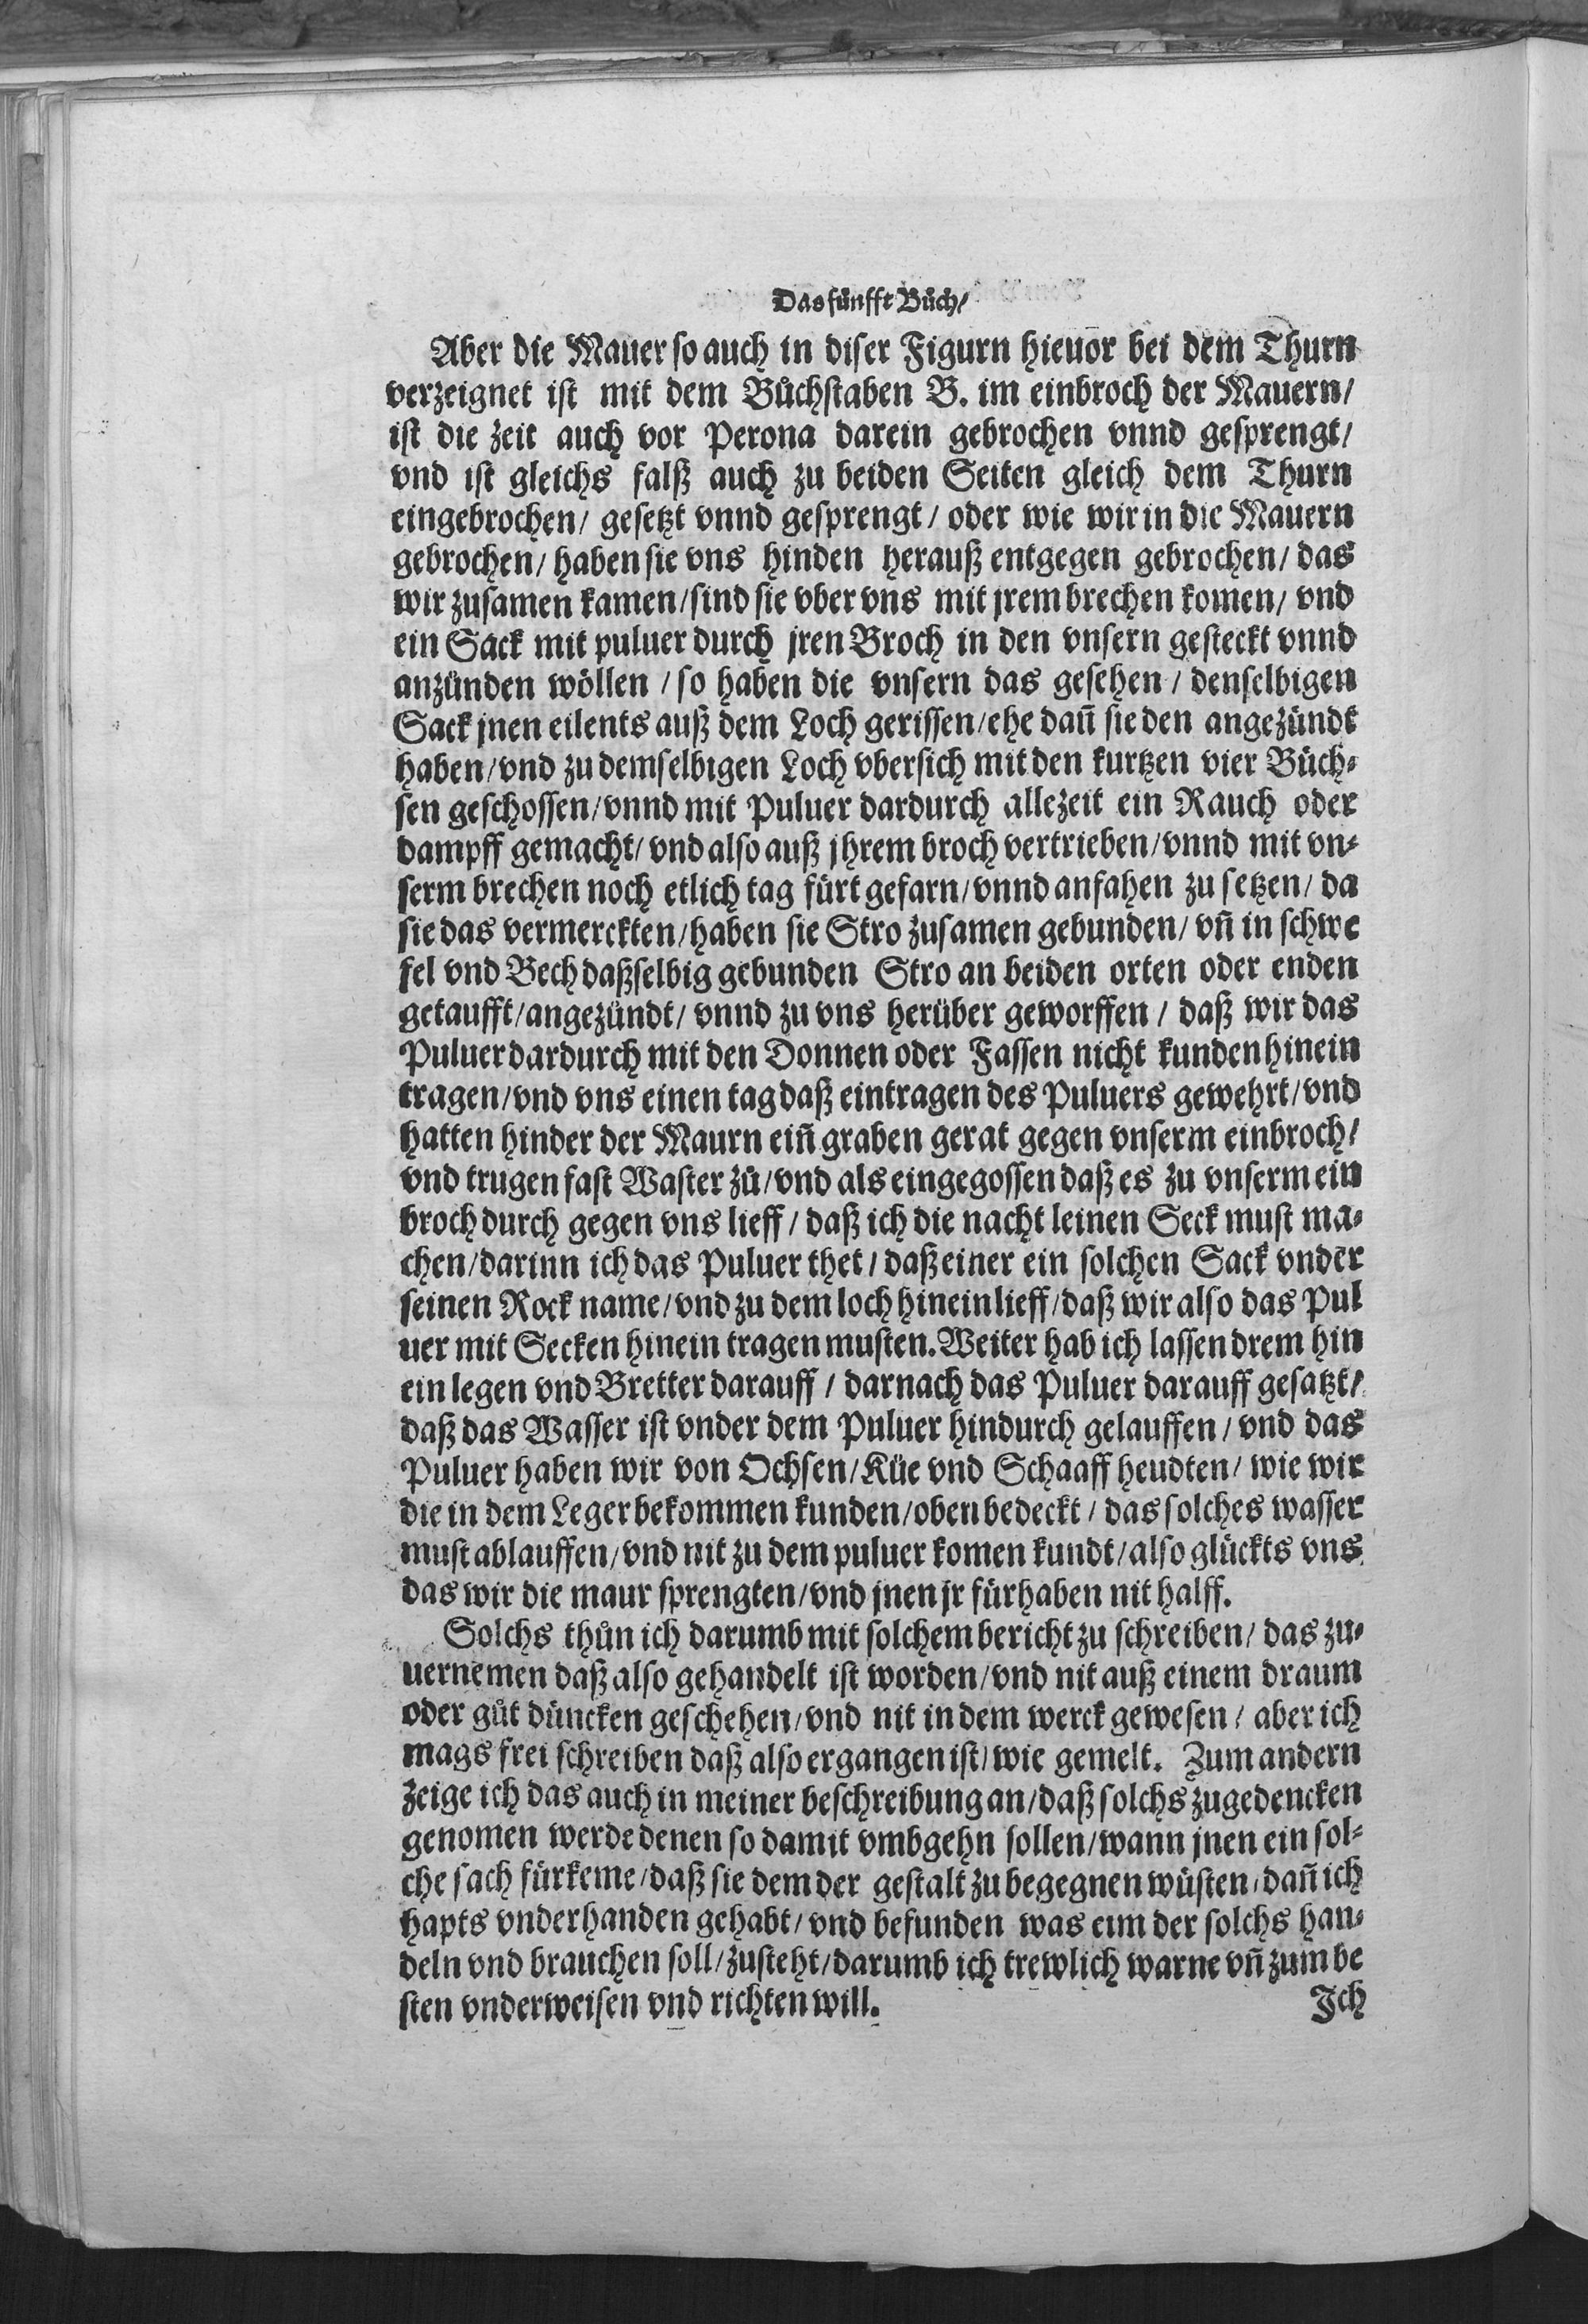 Das fünfft Bůch/
Aber die Mauer so auch in diser Figurn hieuor bei dem Thurn
verzeignet ist mit dem Bůchstaben B. im einbroch der Mauern/
ist die zeit auch vor Perona darein gebrochen vnnd gesprengt/
vnd ist gleichs falß auch zu beiden Seiten gleich dem Thurn
eingebrochen/ gesetzt vnnd gesprengt/ oder wie wir in die Mauern
gebrochen/ haben sie vns hinden herauß entgegen gebrochen/ das
wir zusamen kamen/ sind sie vber vns mit jrem brechen komen/ vnd
ein Sack mit puluer durch jren Broch in den vnsern gesteckt vnnd
anzünden wöllen/ so haben die vnsern das gesehen/ denselbigen
Sack jnen eilents auß dem Loch gerissen/ ehe dañ sie den angezündt
haben/ vnd zu demselbigen Loch vbersich mit den kurtzen vier Büch⸗
sen geschossen/ vnnd mit Puluer dardurch allezeit ein Rauch oder
dampff gemacht/ vnd also auß jhrem broch vertrieben/ vnnd mit vn⸗
serm brechen noch etlich tag fürt gefarn/ vnnd anfahen zu setzen/ da
sie das vermerckten/ haben sie Stro zusamen gebunden/ vñ in schwe
fel vnd Bech daßselbig gebunden Stro an beiden orten oder enden
getaufft/ angezündt/ vnnd zu vns herüber geworffen/ daß wir das
Puluer dardurch mit den Donnen oder Fassen nicht kunden hinein
tragen/ vnd vns einen tag daß eintragen des Puluers gewehrt/ vnd
hatten hinder der Maurn eiñ graben gerat gegen vnserm einbroch/
vnd trugen fast Waster zů/ vnd als eingegossen daß es zu vnserm ein
broch durch gegen vns lieff/ daß ich die nacht leinen Seck must ma⸗
chen/ darinn ich das Puluer thet/ daß einer ein solchen Sack vnder
seinen Rock name/ vnd zu dem loch hinein lieff/ daß wir also das Pul
uer mit Secken hinein tragen musten. Weiter hab ich lassen drem hin
ein legen vnd Bretter darauff/ darnach das Puluer darauff gesatzt/
daß das Wasser ist vnder dem Puluer hindurch gelauffen/ vnd das
Puluer haben wir von Ochsen/ Küe vnd Schaaff heudten/ wie wir
die in dem Leger bekommen kunden/ oben bedeckt/ das solches wasser
must ablauffen/ vnd nit zu dem puluer komen kundt/ also glückts vns
das wir die maur sprengten/ vnd jnen jr fürhaben nit halff.
Solchs thůn ich darumb mit solchem bericht zu schreiben/ das zu⸗
uernemen daß also gehandelt ist worden/ vnd nit auß einem draum
oder gůt düncken geschehen/ vnd nit in dem werck gewesen/ aber ich
mags frei schreiben daß also ergangen ist/ wie gemelt. Zum andern
zeige ich das auch in meiner beschreibung an/ daß solchs zugedencken
genomen werde denen so damit vmbgehn sollen/ wann jnen ein sol⸗
che sach fürkeme/ daß sie dem der gestalt zu begegnen wüsten/ dañ ich
hapts vnderhanden gehabt/ vnd befunden was eim der solchs han⸗
deln vnd brauchen soll/ zusteht/ darumb ich trewlich warne vñ zum be
sten vnderweisen vnd richten will.
Ich